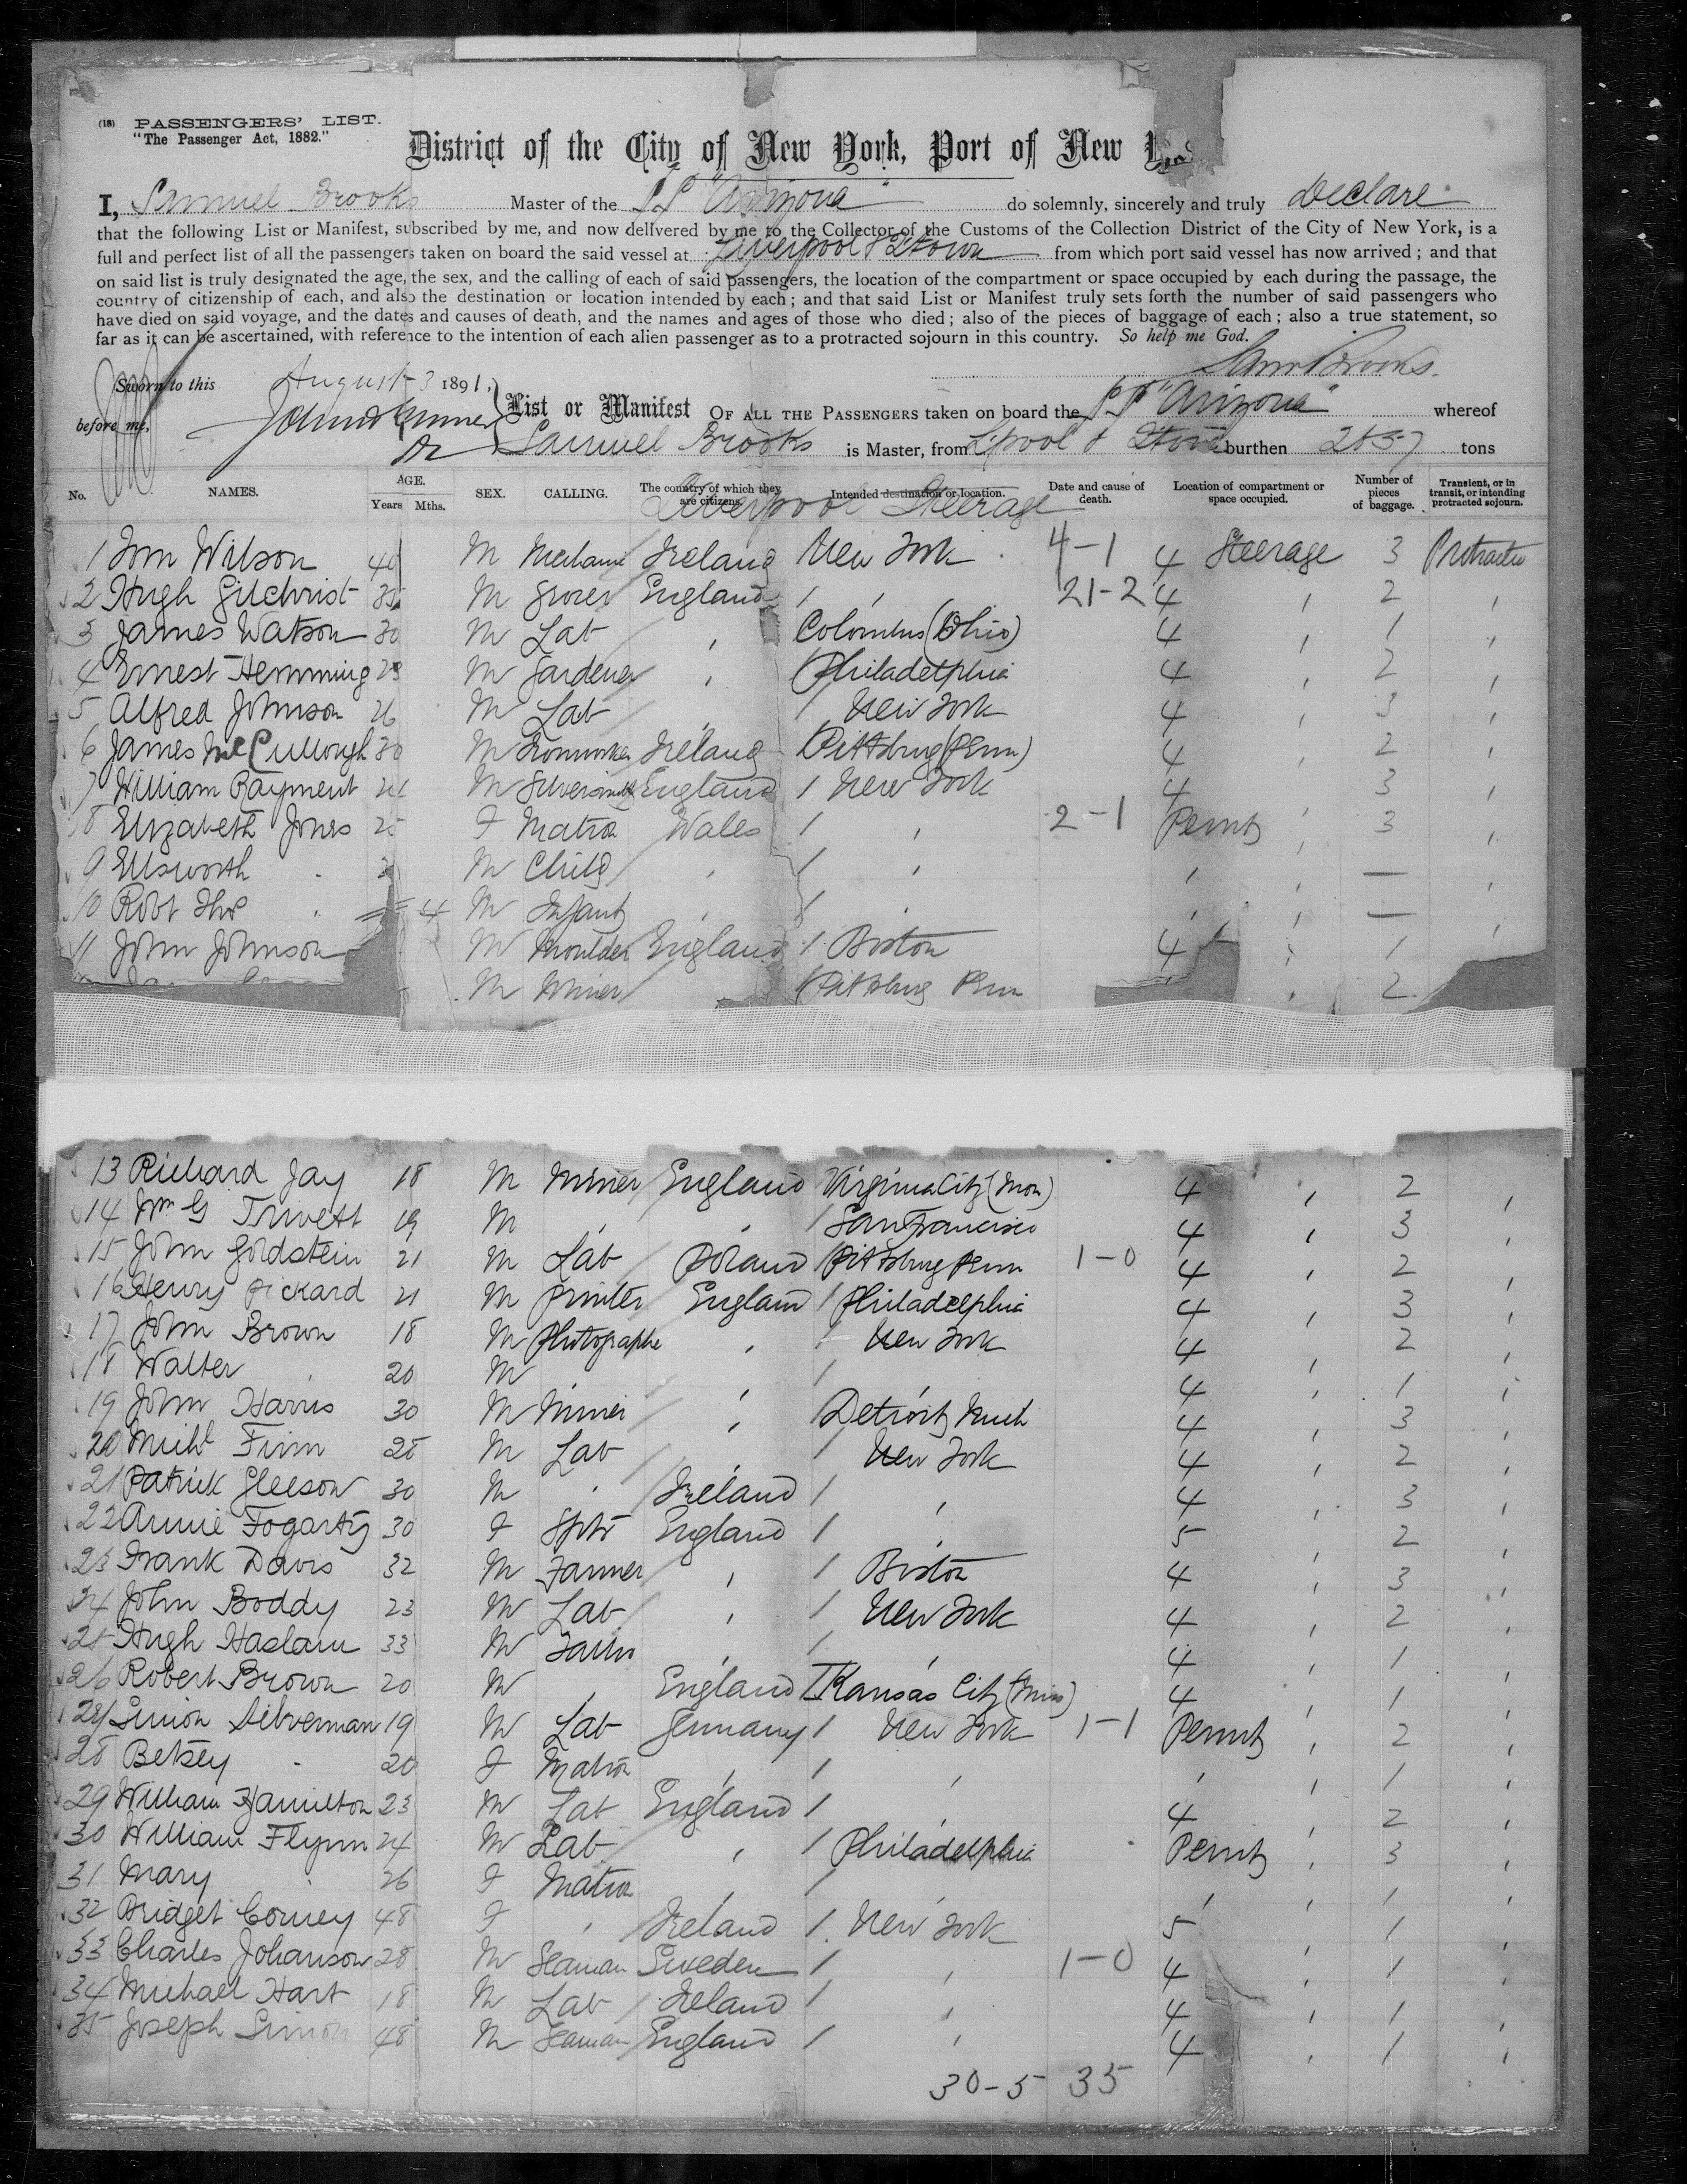 (18) PASSENGERS' LIST.
"The Passenger Act, 1882."
District of the City of New York, Port of New
I, Samuel Brooks Master of the S.S "Arizona" do solemnly, sincerely and truly Declare
that the following List or Manifest, subscribed by me, and now delivered by me to the Collector of the Customs of the Collection District of the City of New York, is a
full and perfect list of all the passengers taken on board the said vessel at Liverpool & Qtown from which port said vessel has now arrived ; and that
on said list is truly designated the age, the sex, and the calling of each of said passengers, the location of the compartment or space occupied by each during the passage, the
country of citizenship of each, and also the destination or location intended by each ; and that said List or Manifest truly sets forth the number of said passengers who
have died on said voyage, and the dates and causes of death, and the names and ages of those who died ; also of the pieces of baggage of each ; also a true statement, so
far as it can be ascertained, with reference to the intention of each alien passenger as to a protracted sojourn in this country. So help me God.
Saml Brooks.
Sworn to this August 3 1891,
before me,
List or Manifest OF ALL THE PASSENGERS taken on board the S.S "Arizona" whereof
Samuel Brooks is Master, from L'pool & Qtown burthen tons
No. NAMES. AGE. Years Mths. SEX. CALLING. The country of which they are citizens. Intended destination or location. Date and cause of death. Location of compartment or space occupied. Number of pieces of baggage. Transient, or in transit, or intending protracted sojourn.
Liverpool Steerage
1 Tom Wilson 40 M Mechanic Ireland New York 4-1 4 Steerage 3 Protracted
2 Hugh Gilchrist 35 M Grocer England / , 21-2 4 , 2 ,
3 James Watson 30 M Lab , Colombus (Ohio) 4 , 1 ,
4 Ernest Hemming 23 M Gardener , Philadelphia 4 , 2 ,
5 Alfred Johnson 26 M Lab , / New York 4 , 3 ,
6 James McCullough 30 M Ironworker Ireland Pittsburg (Penn) 4 , 2 ,
7 William Rayment 24 M Silversmith England / New York 4 , 3 ,
8 Elizabeth Jones 25 F Matron Wales / , 2-1 Permt , 3 ,
9 Ellsworth M Child , / , , , — ,
10 Robt Thos 4 M Infant , / , , , — ,
11 John Johnson M Moulder England / Boston 4 , 1 ,
M Miner / Pittsburg Penn , 2
13 Richard Jay 18 M Miner England Virginia City (Mon) 4 , 2 ,
14 Wm G Trivett 19 M , , / San Francisco 4 , 3 ,
15 John Goldstein 21 M Lab Poland / Pittsburg Penn 1-0 4 , 2 ,
16 Henry Pickard 21 M Printer England / Philadelphia 4 , 3 ,
17 John Brown 18 M Photographer , / New York 4 , 2 ,
18 Walter , 20 M , , / , 4 , 1 ,
19 John Harris 30 M Miner , Detroit Mich 4 , 3 ,
20 Michl Finn 25 M Lab , / New York 4 , 2 ,
21 Patrick Gleeson 30 M , Ireland / , 4 , 3 ,
22 Annie Fogarty 30 F Spstr England / , 5 2 ,
23 Frank Davis 32 M Farmer , / Boston 4 , 3 ,
24 John Boddy 23 M Lab , / New York 4 , 2 ,
25 Hugh Haslam 33 M Tailor , / , 4 , 1 ,
26 Robert Brown 20 M , England Kansas City (Miss) 4 , 1 ,
27 Simon Silverman 19 M Lab Germany / New York 1-1 Permt , 2 ,
28 Betsey " 20 F Matron , / , , , 1 ,
29 William Hamilton 23 M Lab England / , 4 , 2 ,
30 William Flynn 24 M Lab , / Philadelphia Permt , 3 ,
31 Mary , 26 F Matron , / , , , 1 ,
32 Bridget Corney 48 F , Ireland / New York 5 , 1 ,
33 Charles Johanson 28 M Seaman Sweden / , 1-0 4 , 1 ,
34 Michael Hart 18 M Lab Ireland / , 4 , 1 ,
35 Joseph Simon 48 M Seaman England / , 4 , 1 ,
30-5 35